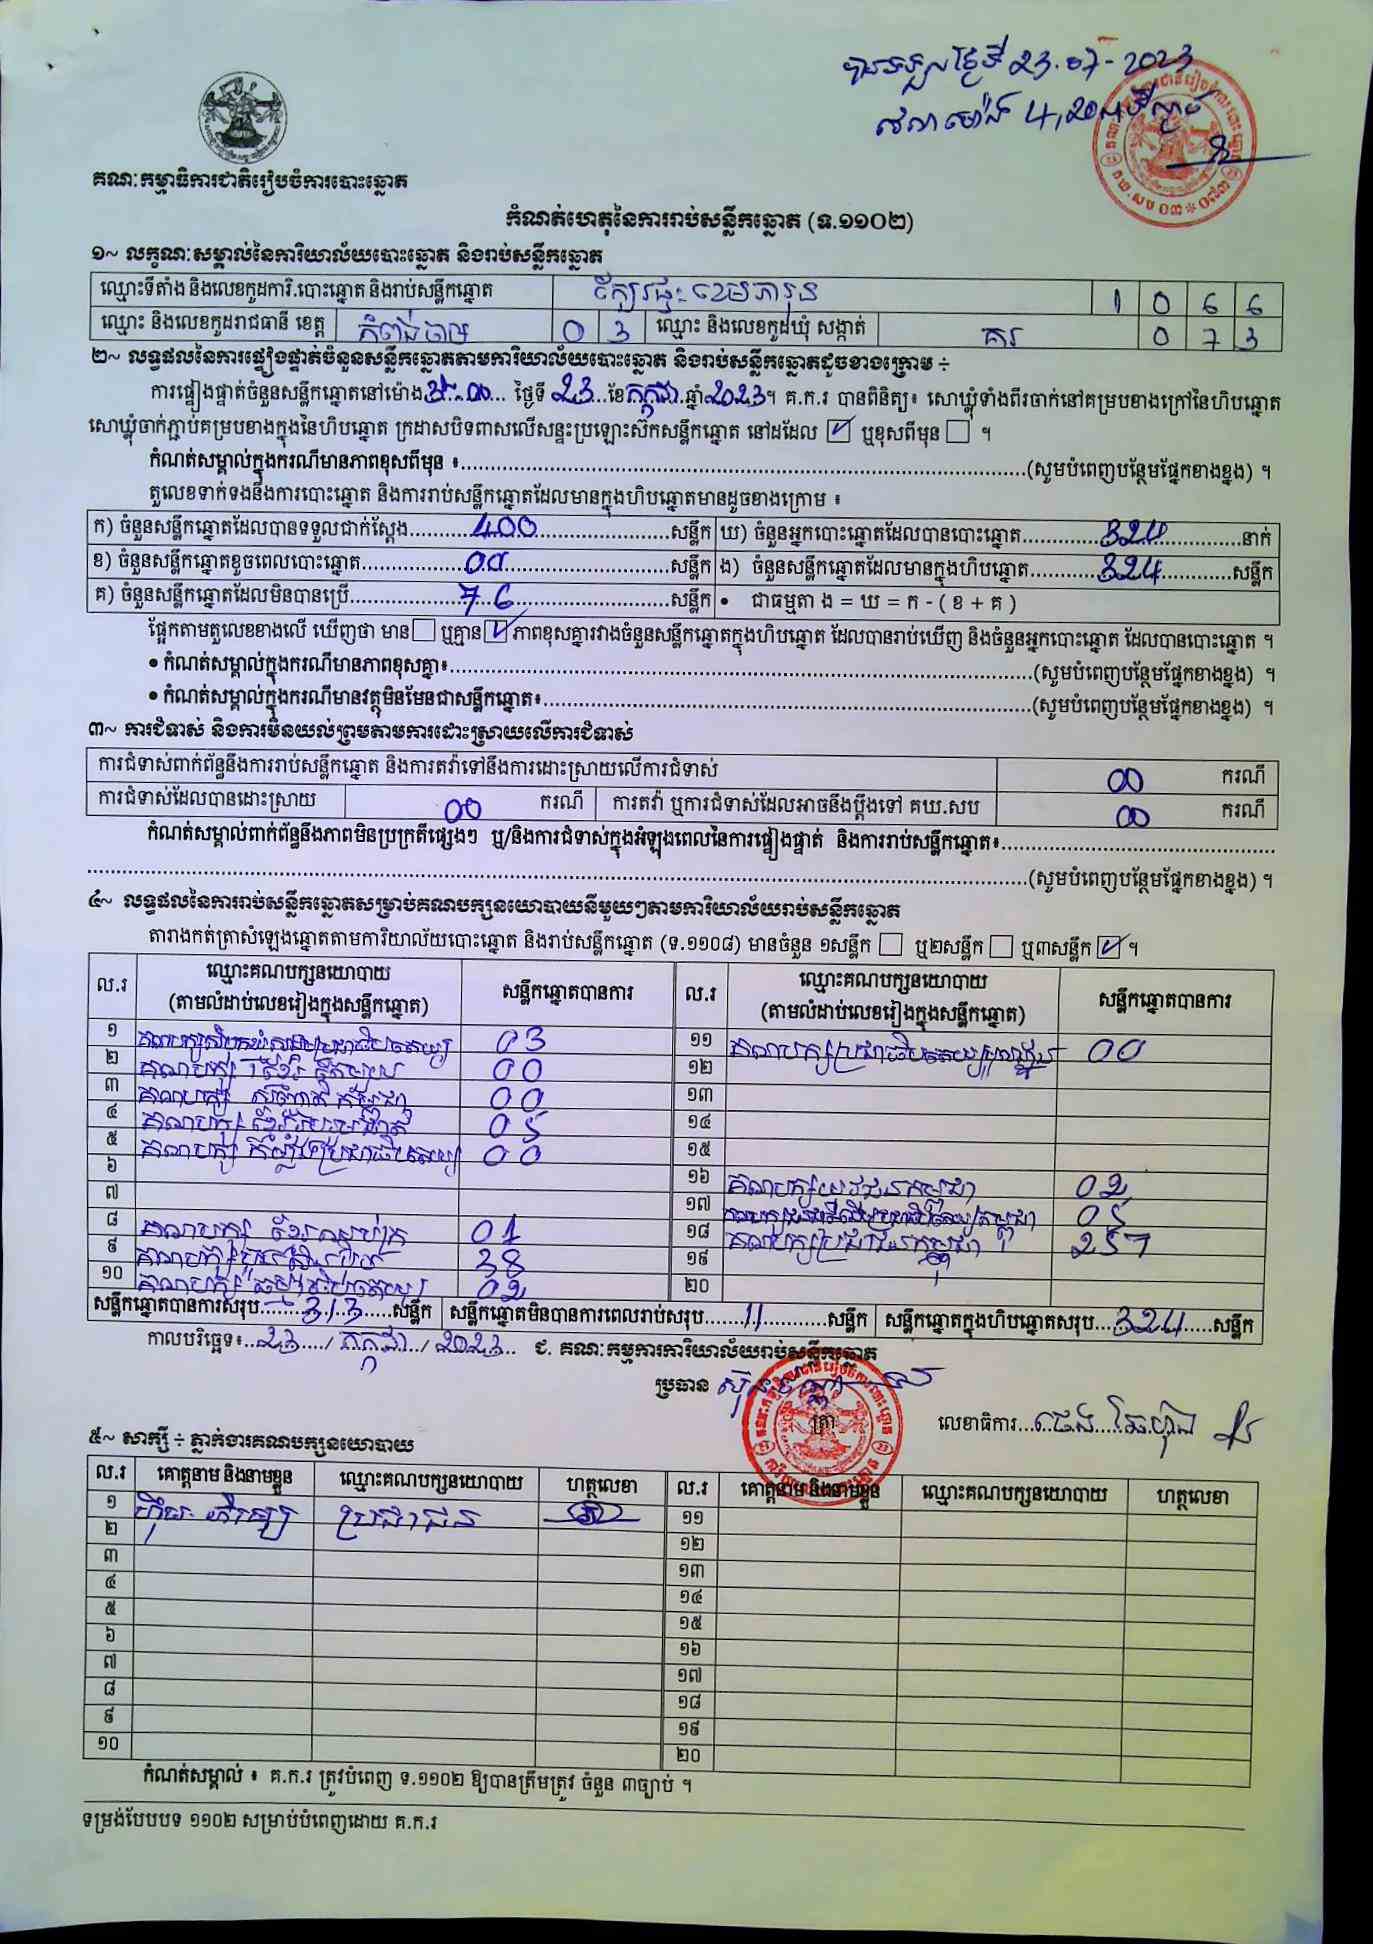 បានទទួលថ្ងៃទី 23.07-2023
វេលាម៉ោង 4,20
គណៈកម្មាធិការជាតិរៀបចំការបោះឆ្នោត
កំណត់ហេតុនៃការរាប់សន្លឹកឆ្នោត (ទ.១១០២)
១~ លក្ខណៈសម្គាល់នៃការិយាល័យបោះឆ្នោត និងរាប់សន្លឹកឆ្នោត
ឈ្មោះទីតាំង និងលេខកូដការិ.បោះឆ្នោត និងរាប់សន្លឹកឆ្នោត 1 0 6 6
ឈ្មោះ និងលេខកូដរាជធានី ខេត្ត កំពង់ចាម 0 3 ឈ្មោះ និងលេខកូដឃុំ សង្កាត់ គរ 0 7 3
២~ លទ្ធផលនៃការផ្ទៀងផ្ទាត់ចំនួនសន្លឹកឆ្នោតតាមការិយាល័យបោះឆ្នោត និងរាប់សន្លឹកឆ្នោតដូចខាងក្រោម ÷
ការផ្ទៀងផ្ទាត់ចំនួនសន្លឹកឆ្នោតនៅម៉ោង ... ថ្ងៃទី 23 ខែ កក្កដា ឆ្នាំ 2023 ។ គ.ក.រ បានពិនិត្យ៖ សោឃ្លុំទាំងពីរចាក់នៅគម្របខាងក្រៅនៃហិបឆ្នោត
សោឃ្លុំចាក់ភ្ជាប់គម្របខាងក្នុងនៃហិបឆ្នោត ក្រដាសបិទពាសលើសន្ទះប្រឡោះស៊កសន្លឹកឆ្នោត នៅដដែល ☑ ឬខុសពីមុន ☐ ។
កំណត់សម្គាល់ក្នុងករណីមានភាពខុសពីមុន ៖ ... (សូមបំពេញបន្ថែមផ្នែកខាងខ្នង) ។
តួលេខទាក់ទងនឹងការបោះឆ្នោត និងការរាប់សន្លឹកឆ្នោតដែលមានក្នុងហិបឆ្នោតមានដូចខាងក្រោម ៖
ក) ចំនួនសន្លឹកឆ្នោតដែលបានទទួលជាក់ស្តែង 400 សន្លឹក ឃ) ចំនួនអ្នកបោះឆ្នោតដែលបានបោះឆ្នោត 324 នាក់
ខ) ចំនួនសន្លឹកឆ្នោតខូចពេលបោះឆ្នោត 00 សន្លឹក ង) ចំនួនសន្លឹកឆ្នោតដែលមានក្នុងហិបឆ្នោត 324 សន្លឹក
គ) ចំនួនសន្លឹកឆ្នោតដែលមិនបានប្រើ 76 សន្លឹក • ជាធម្មតា ង = ឃ = ក - ( ខ + គ )
ផ្អែកតាមតួលេខខាងលើ ឃើញថា មាន ☐ ឬគ្មាន ☑ ភាពខុសគ្នារវាងចំនួនសន្លឹកឆ្នោតក្នុងហិបឆ្នោត ដែលបានរាប់ឃើញ និងចំនួនអ្នកបោះឆ្នោត ដែលបានបោះឆ្នោត ។
• កំណត់សម្គាល់ក្នុងករណីមានភាពខុសគ្នា៖ ... (សូមបំពេញបន្ថែមផ្នែកខាងខ្នង) ។
• កំណត់សម្គាល់ក្នុងករណីមានវត្ថុមិនមែនជាសន្លឹកឆ្នោត៖ ... (សូមបំពេញបន្ថែមផ្នែកខាងខ្នង) ។
៣~ ការជំទាស់ និងការមិនយល់ព្រមតាមការដោះស្រាយលើការជំទាស់
ការជំទាស់ពាក់ព័ន្ធនឹងការរាប់សន្លឹកឆ្នោត និងការតវ៉ាទៅនឹងការដោះស្រាយលើការជំទាស់ 00 ករណី
ការជំទាស់ដែលបានដោះស្រាយ 00 ករណី ការតវ៉ា ឬការជំទាស់ដែលអាចនឹងប្តឹងទៅ គឃ.សប 00 ករណី
កំណត់សម្គាល់ពាក់ព័ន្ធនឹងភាពមិនប្រក្រតីផ្សេងៗ ឬ/និងការជំទាស់ក្នុងអំឡុងពេលនៃការផ្ទៀងផ្ទាត់ និងការរាប់សន្លឹកឆ្នោត៖ ...
... (សូមបំពេញបន្ថែមផ្នែកខាងខ្នង) ។
៤~ លទ្ធផលនៃការរាប់សន្លឹកឆ្នោតសម្រាប់គណបក្សនយោបាយនីមួយៗតាមការិយាល័យរាប់សន្លឹកឆ្នោត
តារាងកត់ត្រាសំឡេងឆ្នោតតាមការិយាល័យបោះឆ្នោត និងរាប់សន្លឹកឆ្នោត (ទ.១១០៨) មានចំនួន ១សន្លឹក ☐ ឬ២សន្លឹក ☐ ឬ៣សន្លឹក ☑ ។
ល.រ ឈ្មោះគណបក្សនយោបាយ (តាមលំដាប់លេខរៀងក្នុងសន្លឹកឆ្នោត) សន្លឹកឆ្នោតបានការ ល.រ ឈ្មោះគណបក្សនយោបាយ (តាមលំដាប់លេខរៀងក្នុងសន្លឹកឆ្នោត) សន្លឹកឆ្នោតបានការ
១ 03 ១១ 00
២ គណបក្ស 00 ១២
៣ គណបក្ស 00 ១៣
៤ គណបក្ស 05 ១៤
៥ គណបក្ស កម្លាំងប្រជាធិបតេយ្យ 00 ១៥
៦ ១៦ គណបក្សយុវជនកម្ពុជា 02
៧ ១៧ 05
៨ គណបក្ស ខ្មែរ 01 ១៨ គណបក្សប្រជាជនកម្ពុជា 257
៩ គណបក្ស 38 ១៩
១០ គណបក្ស ធម្មាធិបតេយ្យ 02 ២០
សន្លឹកឆ្នោតបានការសរុប 313 សន្លឹក សន្លឹកឆ្នោតមិនបានការពេលរាប់សរុប 11 សន្លឹក សន្លឹកឆ្នោតក្នុងហិបឆ្នោតសរុប 324 សន្លឹក
កាលបរិច្ឆេទ៖ 23 / កក្កដា / 2023 ជ. គណៈកម្មការការិយាល័យរាប់សន្លឹកឆ្នោត
ប្រធាន ត្រា លេខាធិការ
៥~ សាក្សី ÷ ភ្នាក់ងារគណបក្សនយោបាយ
ល.រ គោត្តនាម និងនាមខ្លួន ឈ្មោះគណបក្សនយោបាយ ហត្ថលេខា ល.រ គោត្តនាម និងនាមខ្លួន ឈ្មោះគណបក្សនយោបាយ ហត្ថលេខា
១ ប្រជាជន ១១
២ ១២
៣ ១៣
៤ ១៤
៥ ១៥
៦ ១៦
៧ ១៧
៨ ១៨
៩ ១៩
១០ ២០
កំណត់សម្គាល់ ៖ គ.ក.រ ត្រូវបំពេញ ទ.១១០២ ឱ្យបានត្រឹមត្រូវ ចំនួន ៣ច្បាប់ ។
ទម្រង់បែបបទ ១១០២ សម្រាប់បំពេញដោយ គ.ក.រ